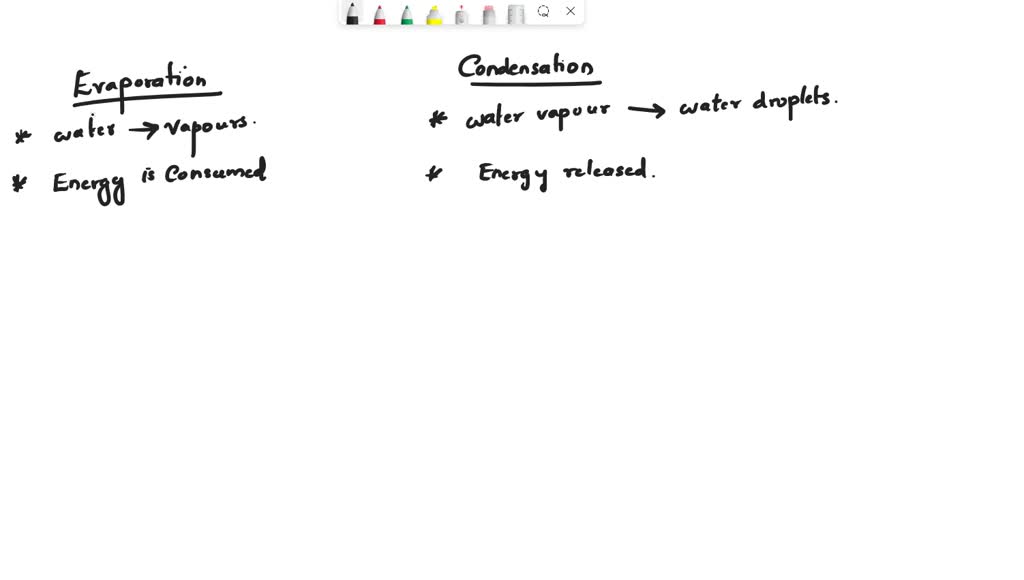 Evaporation
* water → vapours.
* Energy is Consumed
Condensation
* water vapour → water droplets.
* Energy released.